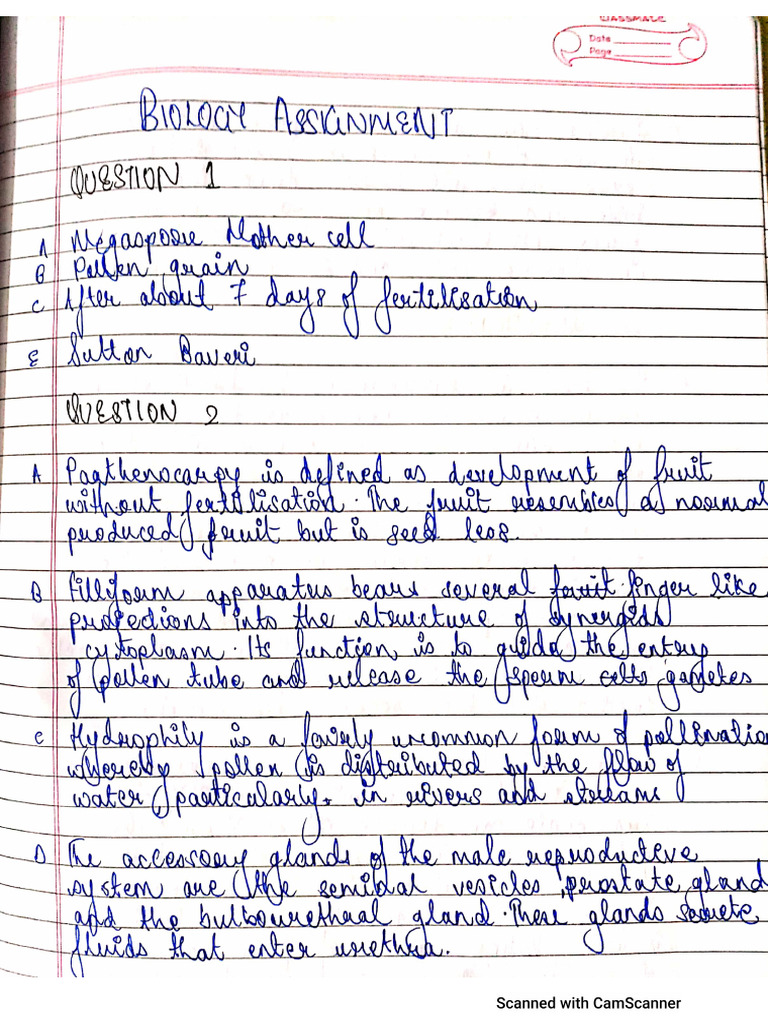 CLASSMATE
Date
Page
BIOLOGY ASSIGNMENT
QUESTION 1
A Megaspore Mother cell
B Pollen grain
C After about 7 days of fertilisation
E Sutton Baveri
QUESTION 2
A Pagthenocarpy is defined as development of fruit
without fertilisation. The fruit resembles a normal
produced fruit but is seed less.
B Filliform apparatus bears several fruit finger like
projections into the structure of synergids
cytoplasm. Its function is to guide the entry
of pollen tube and release the sperm cells gametes
C Hydrophily is a fairly uncommon form of pollination
whereby pollen is distributed by the flow of
water particularly. in rivers and streams
D The accessory glands of the male reproductive
system are the semidal vesicles, prostate gland
and the bulbourethral gland. These glands secrete
fluids that enter urethra.
Scanned with CamScanner